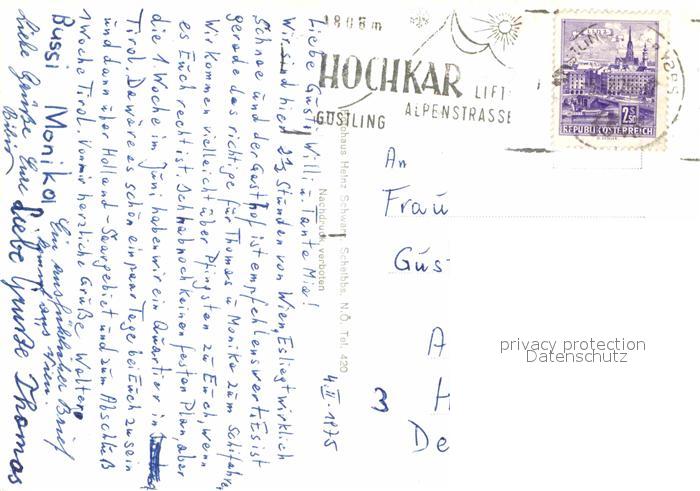 1808 m
HOCHKAR
LIFT
ALPENSTRASSE
GÖSTLING
REPUBLIK ÖSTERREICH
Liebe Gusti, Willi u. Tante Mia!
Wir sind hier 2½ Stunden von Wien. Es liegt wirklich
Schnee und der Gasthof ist empfehlenswert. Es ist
gerade das richtige für Thomas u Monika zum Schifahren
Wir kommen vielleicht über Pfingsten zu Euch, wenn
es Euch recht ist. Ich hab noch keinen festen Plan, aber
die 1 Woche im Juni haben wir ein Quartier in
Tirol. Da wäre es schön ein paar Tage bei Euch zu sein
und dann über Holland - Saargebiet und zum Abschluß
1 Woche Tirol. Von mir herzliche Grüße Walter
Ein ausführlicher Brief
kommt aus Wien.
Bussi Monika
Liebe Grüße Eure
Liebe Grüße Thomas
4.II.1975
Heinz Schwarz, Scheibbs, N.Ö. Tel. 420
Nachdruck verboten
An
Frau
Gus
A
3 H
De
privacy protection
Datenschutz